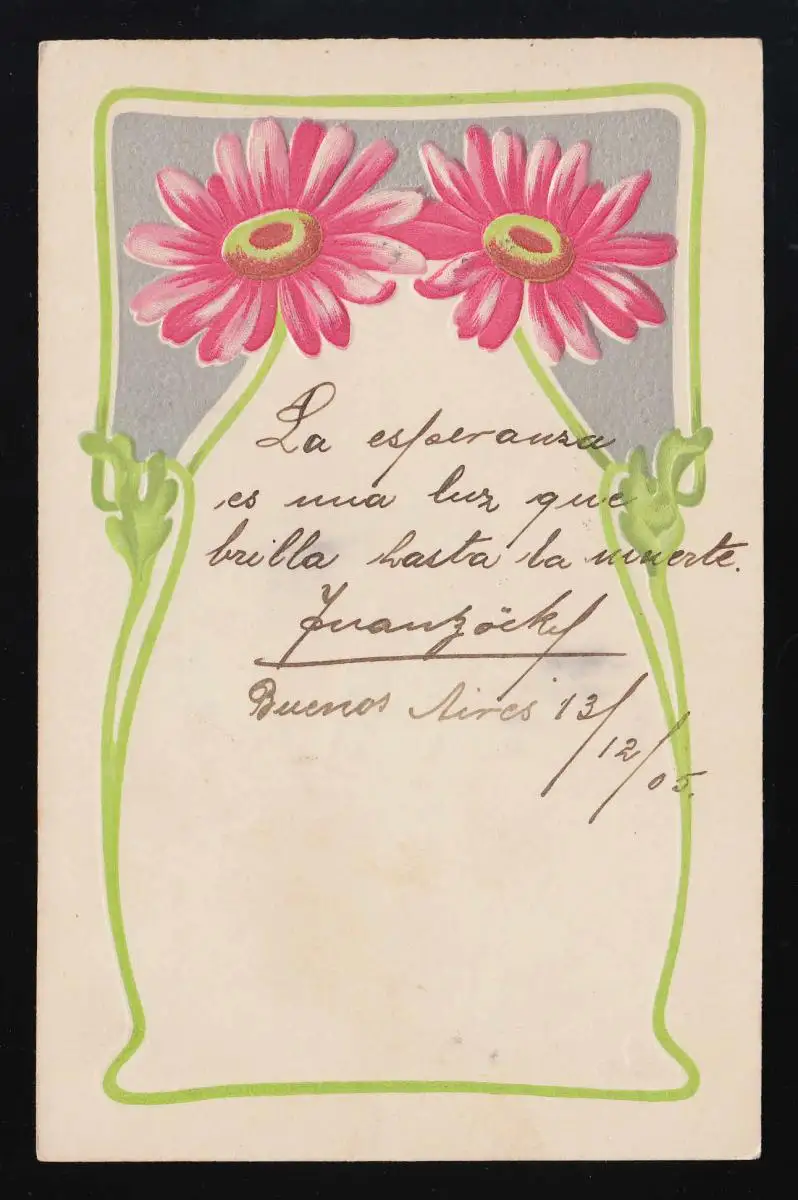 La esperanza
es una luz que
brilla hasta la muerte.
Juan Zöckl
Buenos Aires 13/12/05.